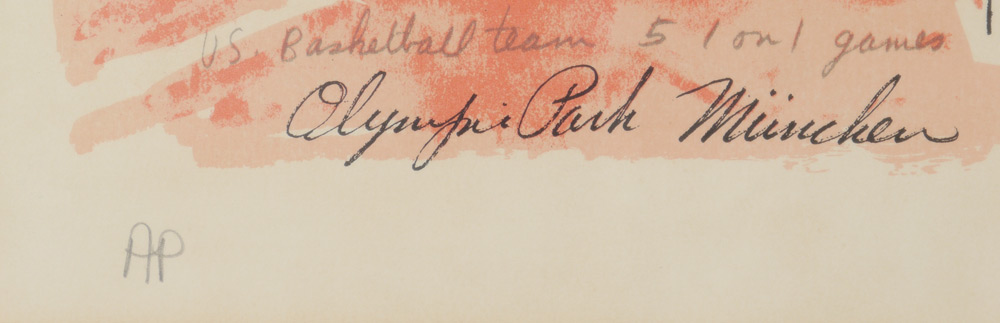 US. Basketball team 5 1 on 1 games
Olympic Park München
AP